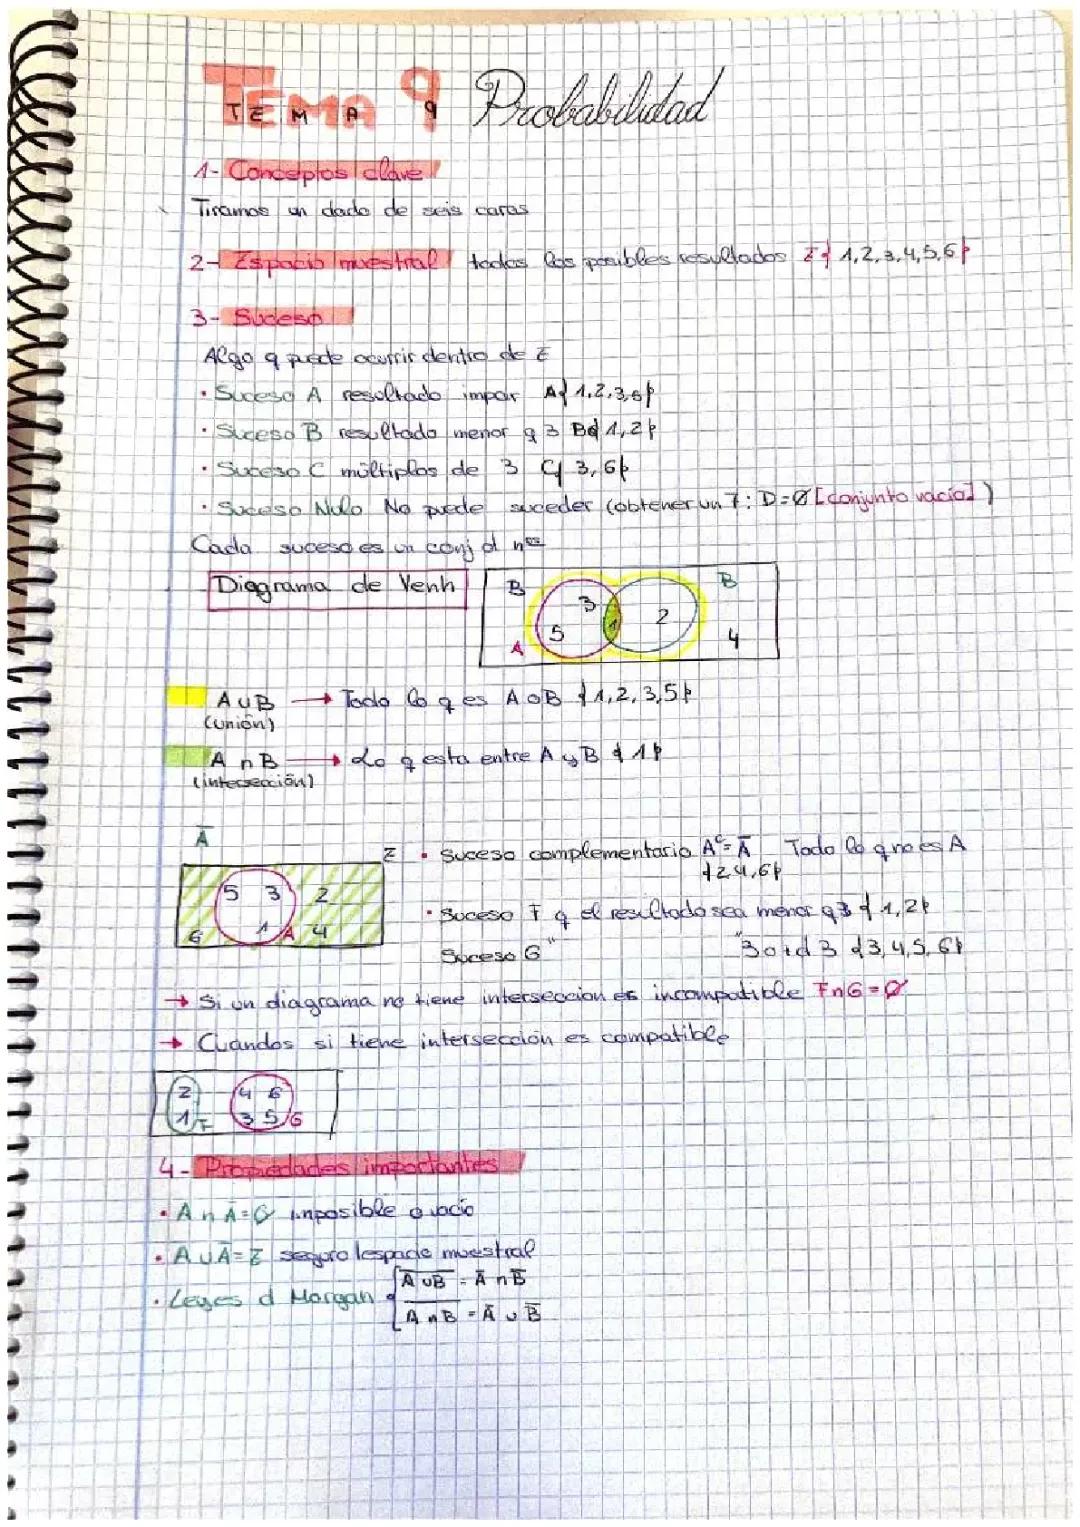 TEMA 9 Probabilidad
TEMA 9
1- Conceptos clave
Tiramos un dado de seis caras
2- Espacio muestral todos los posibles resultados E{1,2,3,4,5,6}
3- Suceso
Algo q puede ocurrir dentro de E
· Suceso A resultado impar A{1,2,3,5}
· Suceso B resultado menor q 3 B{1,2}
· Suceso C múltiplos de 3 C{3,6}
· Suceso Nulo No puede suceder (obtener un 7: D=Ø [conjunto vacío])
Cada suceso es un conj d nos
Diagrama de Venh
B B
3 1 2
5 4
A
A∪B → Todo lo q es A o B {1,2,3,5}
(unión)
A∩B → Lo q esta entre A y B {1}
(intersección)
Ā
E
5 3 2
6 1 A 4
· Suceso complementario Aᶜ=Ā Todo lo q no es A
{2,4,6}
· Suceso F q el resultado sea menor q 3 {1,2}
Suceso G " " 3 o + d 3 {3,4,5,6}
→ Si un diagrama no tiene interseccion es incompatible F∩G=Ø
→ Cuandos si tiene intersección es compatible
2 4 6
1 F 3 5 G
4- Propiedades importantes
· A∩Ā=Ø imposible o vacio
· A∪Ā=E seguro/espacio muestral
· Leyes d Morgan
A̅∪̅B̅ = Ā∩B̅
A̅∩̅B̅ = Ā∪B̅